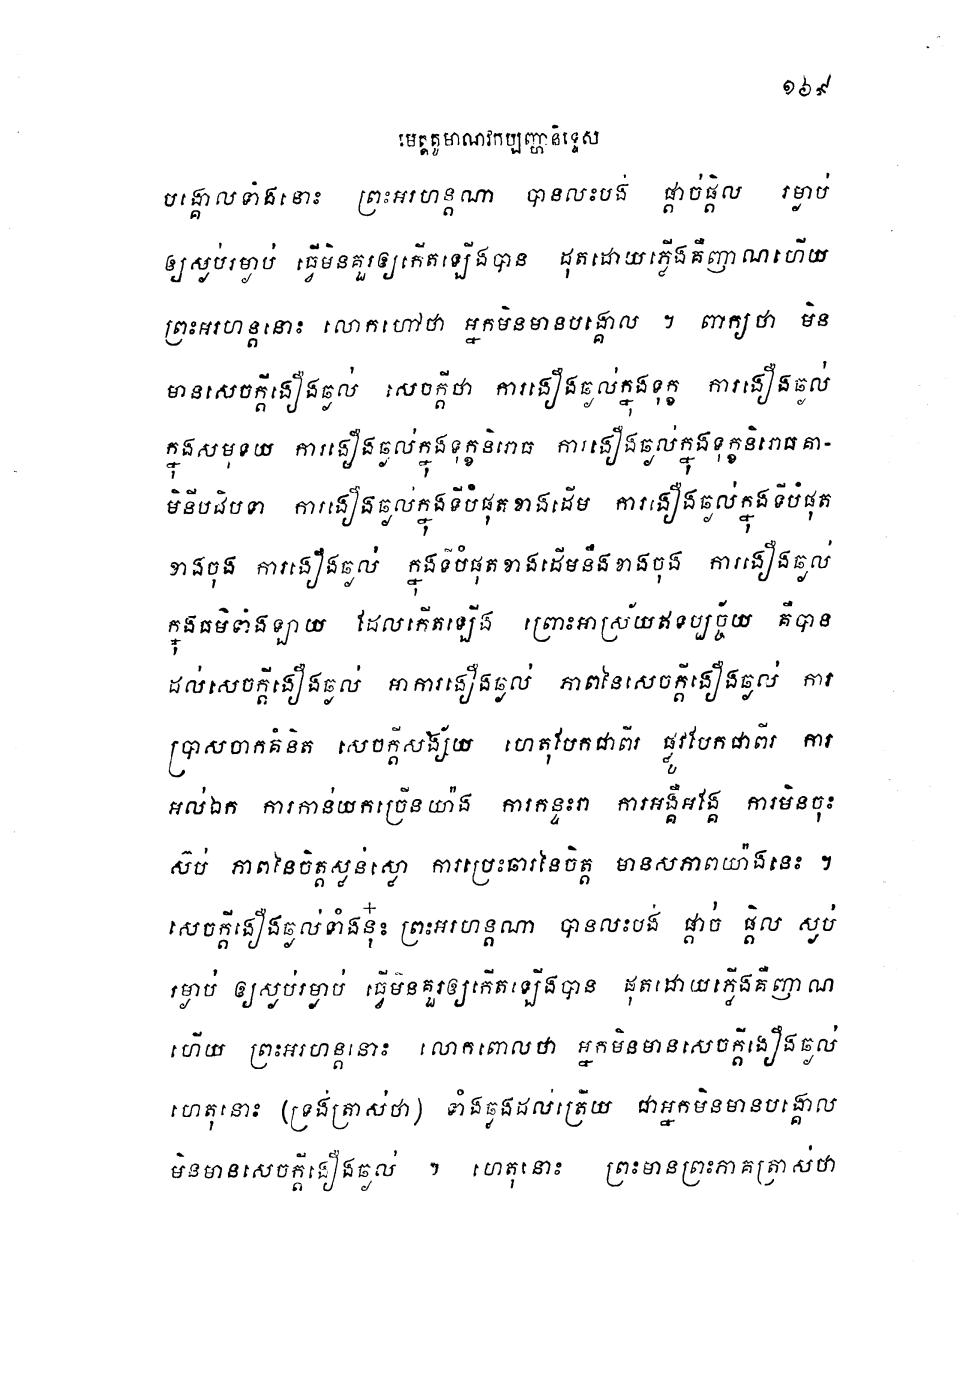 ១៦៩
មេត្តគូមាណវកប្បញ្ហានិទ្ទេស
បង្គោលទាំងនោះ ព្រះអរហន្តណា បានលះបង់ ផ្តាច់ផ្តិល រម្ងាប់
ឲ្យស្ងប់រម្ងាប់ ធ្វើមិនគួរឲ្យកើតឡើងបាន ដុតដោយភ្លើងគឺញាណហើយ
ព្រះអរហន្តនោះ លោកហៅថា អ្នកមិនមានបង្គោល ។ ពាក្យថា មិន
មានសេចក្តីងឿងឆ្ងល់ សេចក្តីថា ការងឿងឆ្ងល់ក្នុងទុក្ខ ការងឿងឆ្ងល់
ក្នុងសមុទយ ការងឿងឆ្ងល់ក្នុងទុក្ខនិរោធ ការងឿងឆ្ងល់ក្នុងទុក្ខនិរោធគា-
មិនីបដិបទា ការងឿងឆ្ងល់ក្នុងទីបំផុតខាងដើម ការងឿងឆ្ងល់ក្នុងទីបំផុត
ខាងចុង ការងឿងឆ្ងល់ ក្នុងទីបំផុតខាងដើមនឹងខាងចុង ការងឿងឆ្ងល់
ក្នុងធម៌ទាំងឡាយ ដែលកើតឡើង ព្រោះអាស្រ័យឥទប្បច្ច័យ គឺបាន
ដល់សេចក្តីងឿងឆ្ងល់ អាការងឿងឆ្ងល់ ភាពនៃសេចក្តីងឿងឆ្ងល់ ការ
ប្រាសចាកគំនិត សេចក្តីសង្ស័យ ហេតុបែកជាពីរ ផ្លូវបែកជាពីរ ការ
អល់ឯក ការកាន់យកច្រើនយ៉ាង ការកន្ទះរា ការអង្គឺអង្គែ ការមិនចុះ
ស៊ប់ ភាពនៃចិត្តស្ងន់ស្ងោ ការប្រេះឆារនៃចិត្ត មានសភាពយ៉ាងនេះ ។
សេចក្តីងឿងឆ្ងល់ទាំងនុ៎ះ ព្រះអរហន្តណា បានលះបង់ ផ្តាច់ ផ្តិល ស្ងប់
រម្ងាប់ ឲ្យស្ងប់រម្ងាប់ ធ្វើមិនគួរឲ្យកើតឡើងបាន ដុតដោយភ្លើងគឺញាណ
ហើយ ព្រះអរហន្តនោះ លោកពោលថា អ្នកមិនមានសេចក្តីងឿងឆ្ងល់
ហេតុនោះ (ទ្រង់ត្រាស់ថា) ទាំងឆ្លងដល់ត្រើយ ជាអ្នកមិនមានបង្គោល
មិនមានសេចក្តីងឿងឆ្ងល់ ។ ហេតុនោះ ព្រះមានព្រះភាគត្រាស់ថា